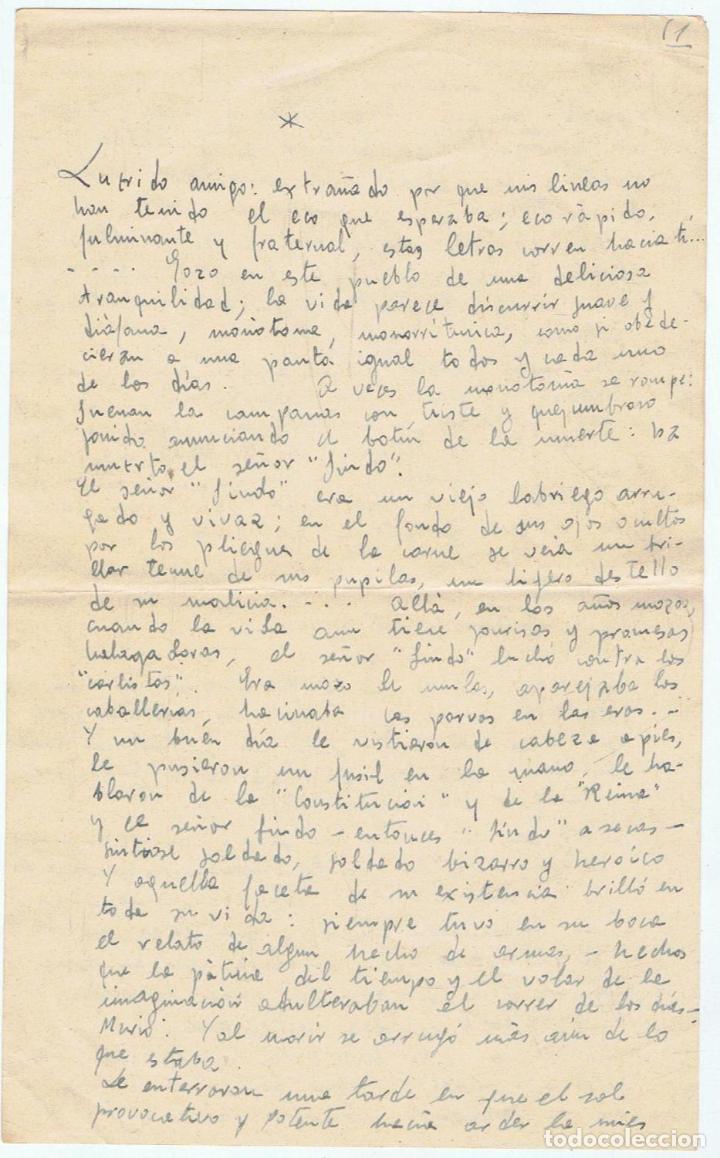 (1
*
Querido amigo: extrañado por que mis lineas no
han tenido el eco que esperaba; eco rápido,
fulminante y fraternal, estas letras corren hacia tí...
.... Gozo en este pueblo de una deliciosa
tranquilidad; la vida parece discurrir suave y
diáfana, monótona, monorrítmica, como si obede-
cieran a una pauta igual todos y cada uno
de los días. A veces la monotonía se rompe:
suenan la campanas con triste y quejumbroso
sonido anunciando el botín de la muerte: ha
muerto el señor "Sindo".
El señor "Sindo" era un viejo labriego arru-
gado y vivaz; en el fondo de sus ojos ocultos
por los pliegues de la carne se veía un bri-
llar tenue de sus pupilas, un ligero destello
de su malicia.... Allá, en los años mozos,
cuando la vida aun tiene sonrisas y promesas
halagadoras, el señor "Sindo" luchó contra los
"carlistas". Era mozo de mulas, aparejaba las
caballerías, hacinaba las parvas en las eras...
Y un buen día le vistieron de cabeza a pies,
le pusieron un fusil en la mano, le ha-
blaron de la "Constitución" y de la "Reina"
y el señor Sindo - entonces "Sindo" a secas -
sintióse soldado, soldado bizarro y heróico
Y aquella faceta de su existencia brilló en
toda su vida: siempre tuvo en su boca
el relato de algun hecho de armas, - hechos
que la pátina del tiempo y el volar de la
imaginación adulteraban el correr de los días -
Murió. Y al morir se arrugó más aún de lo
que estaba.
Le enterraron una tarde en que el sol
provocativo y potente hacía arder la mies
todocoleccion
todocoleccion.net